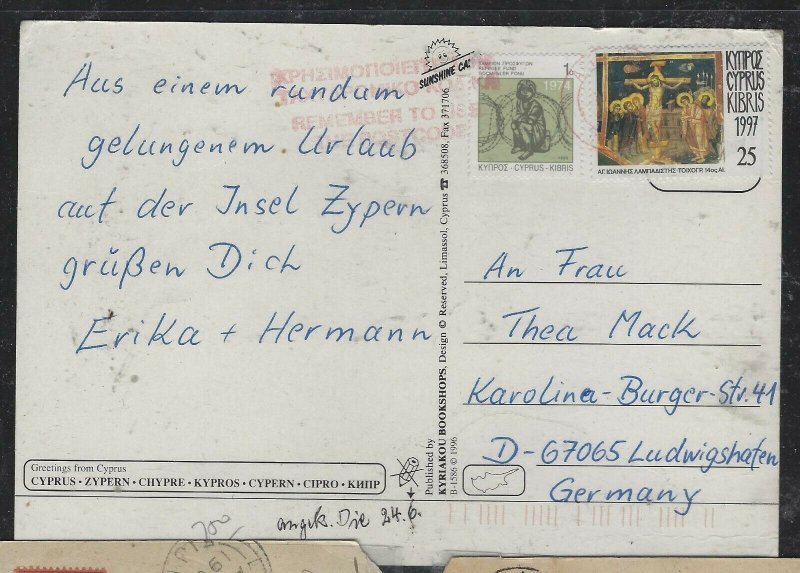 Aus einem rundum
gelungenem Urlaub
auf der Insel Zypern
grüßen Dich
Erika + Hermann
Greetings from Cyprus
CYPRUS · ZYPERN · CHYPRE · KYPROS · CYPERN · CIPRO · КИПР
angek. Die 24.6.
SUNSHINE CA.
Published by
KYRIAKOU BOOKSHOPS. Design © Reserved, Limassol, Cyprus ☎ 368508, Fax 371706
B-1586 © 1996
REMEMBER TO USE
POSTCODE
ΤΑΜΕΙΟΝ ΠΡΟΣΦΥΓΩΝ
REFUGEE FUND
GÖÇMENLER FONU
1c
1974
ΚΥΠΡΟΣ · CYPRUS · KIBRIS
ΚΥΠΡΟΣ
CYPRUS
KIBRIS
1997
25
ΑΓ. ΙΩΑΝΝΗΣ ΛΑΜΠΑΔΙΣΤΗΣ-ΤΟΙΧΟΓΡ. 14ος ΑΙ.
An Frau
Thea Mack
Karolina-Burger-Str. 41
D-67065 Ludwigshafen
Germany